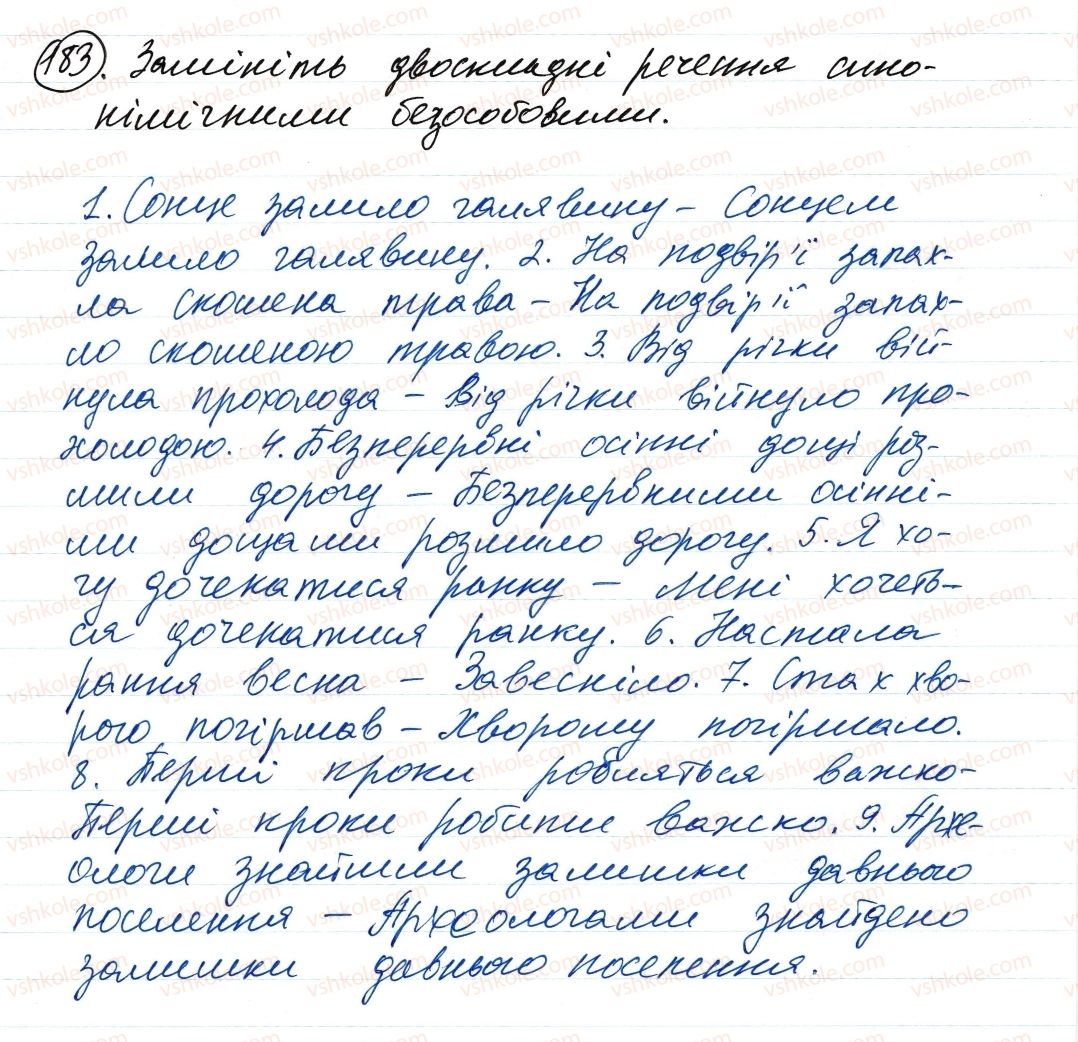 183. Замініть двоскладні речення сино-
німічними безособовими.
1. Сонце залило галявину – Сонцем
залило галявину. 2. На подвір'ї запах-
ла скошена трава – На подвір'ї запах-
ло скошеною травою. 3. Від річки вій-
нула прохолода – Від річки війнуло про-
холодою. 4. Безперервні осінні дощі роз-
мили дорогу – Безперервними осінні-
ми дощами розмило дорогу. 5. Я хо-
чу дочекатися ранку – Мені хочеть-
ся дочекатися ранку. 6. Настала
рання весна – Завесніло. 7. Стах хво-
рого погіршав – Хворому погіршало.
8. Перші кроки робляться важко-
Перші кроки робити важко. 9. Архе-
ологи знайшли залишки давнього
поселення – Археологами знайдено
залишки давнього поселення.